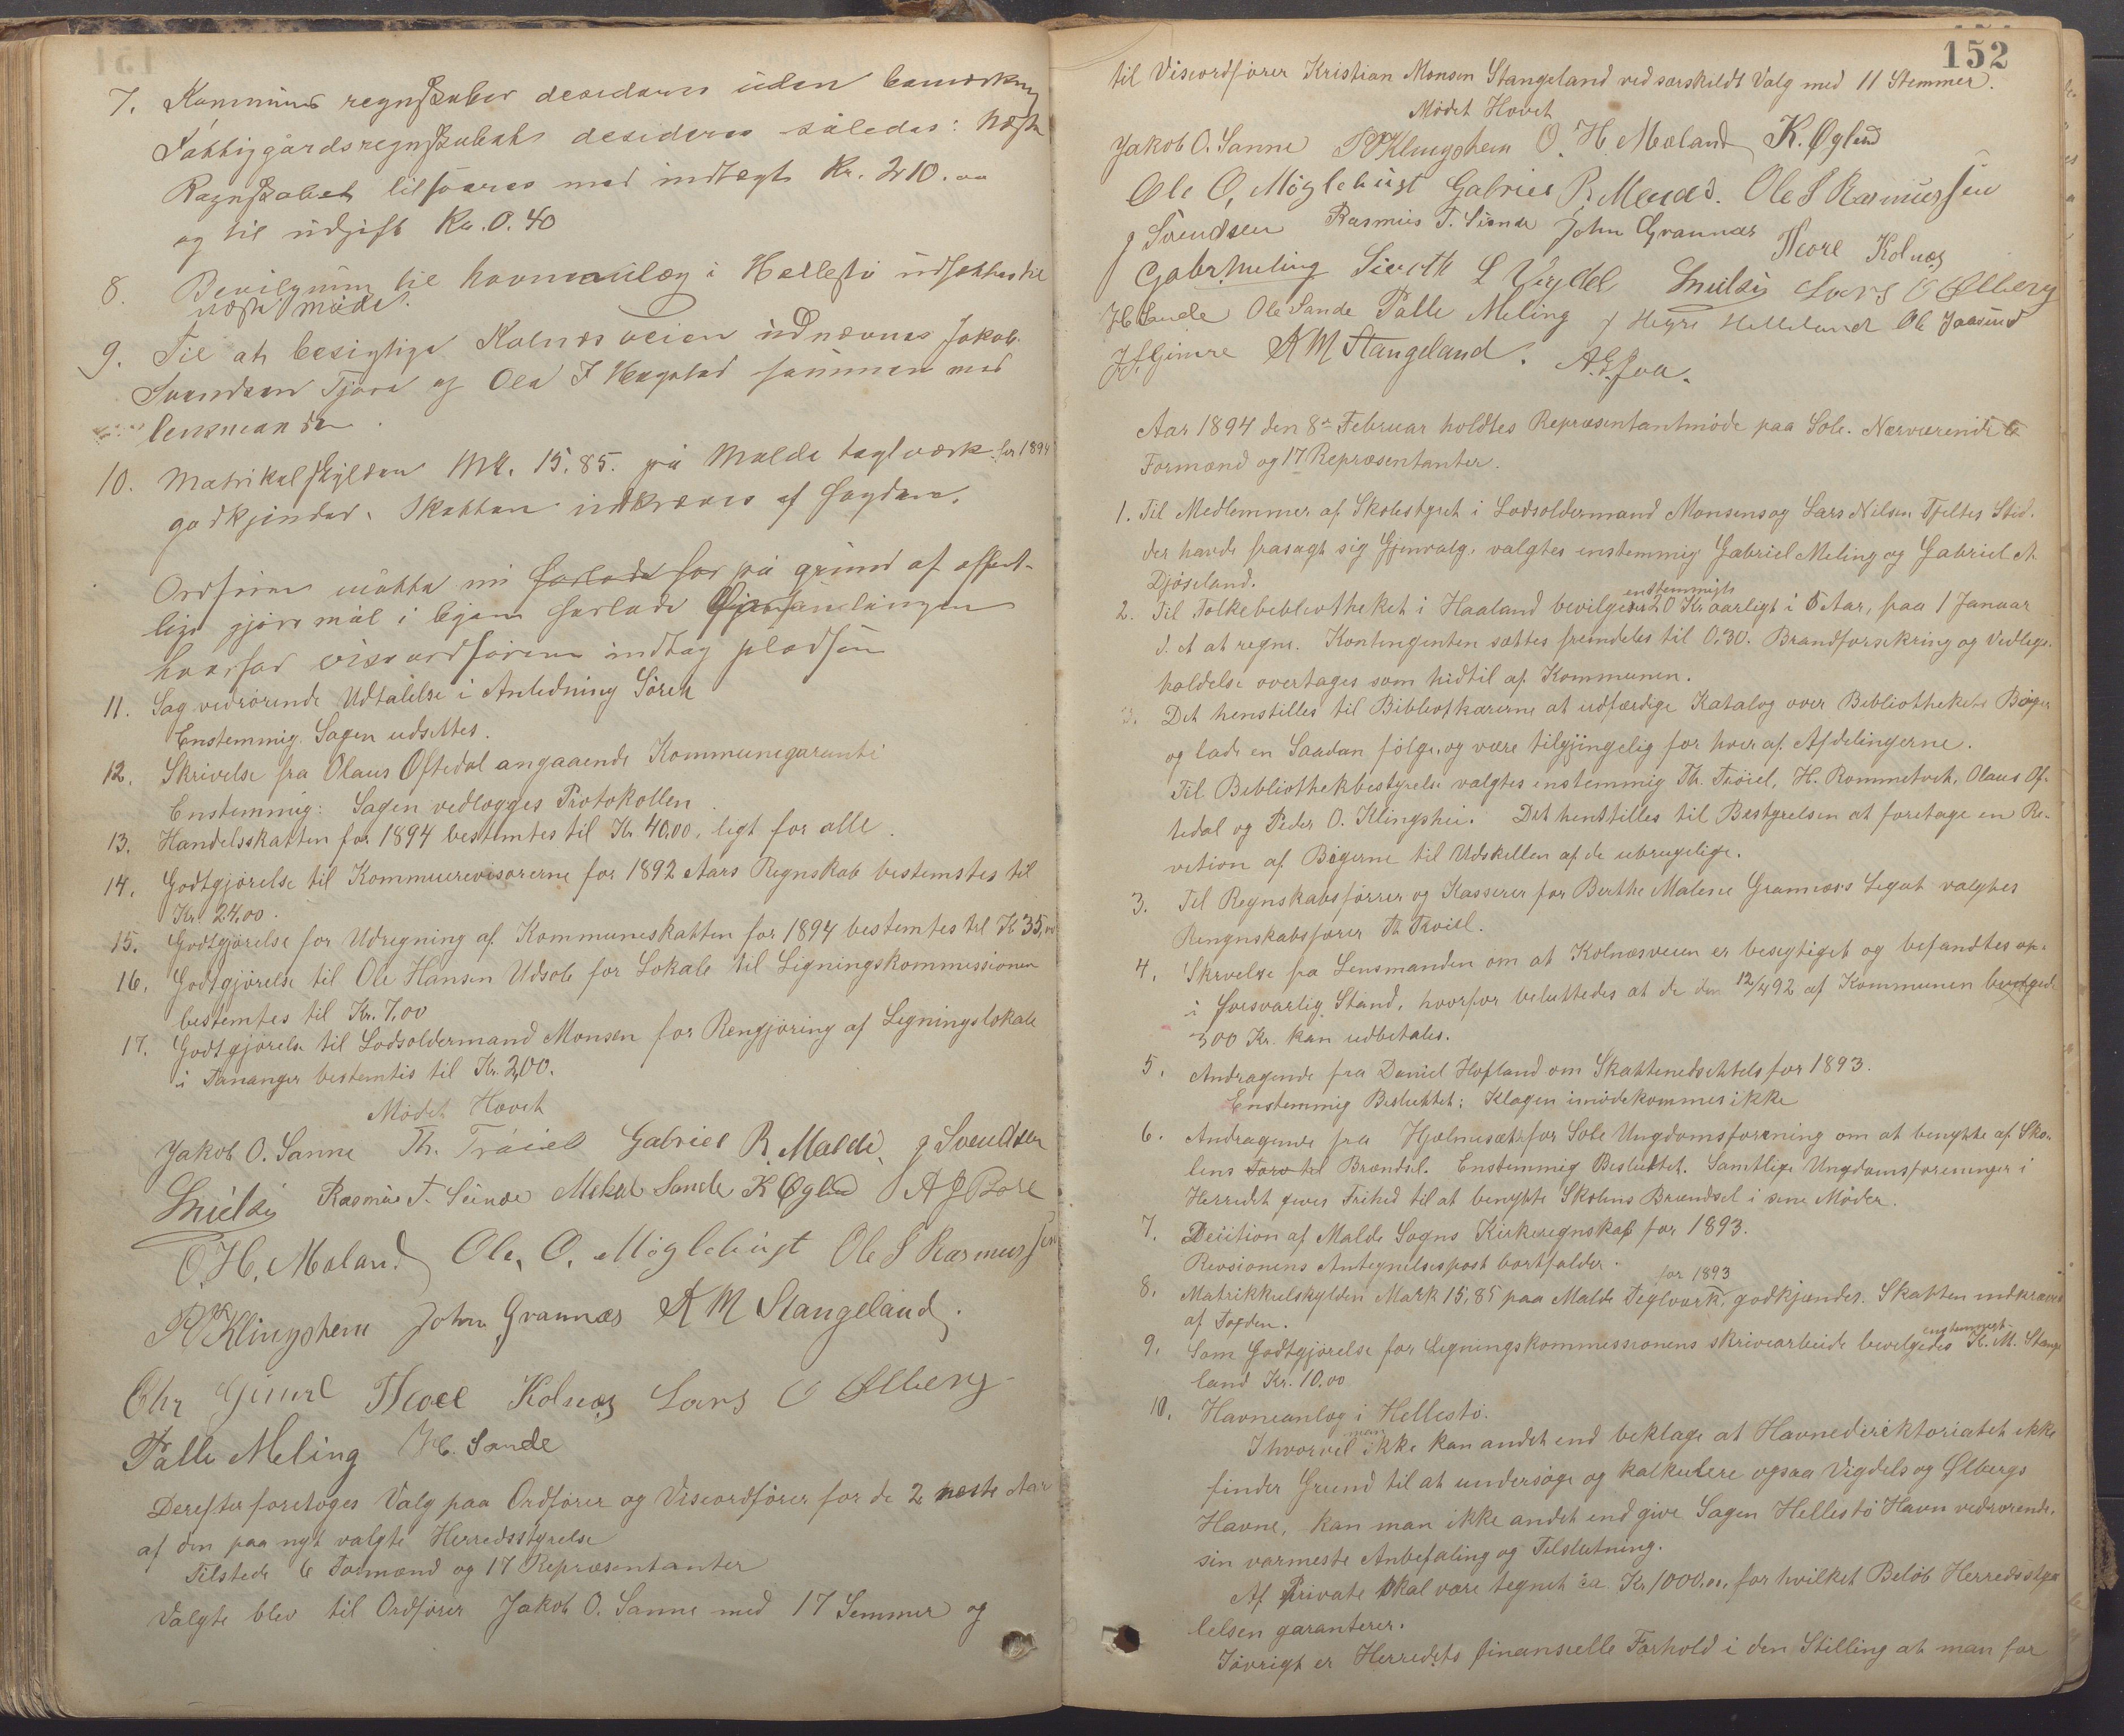 7. Kommune regnskaber desideres uden bemærkning
Fattiggårdsregnskabet desideres således: Næste
Regnskabet tilføres med indtægt Kr. 210.00
og til udgift Kr. 0.40
8. Bevilgning til havneanlæg i Hellestø udsættes til
næste møde.
9. Til at besigtige Kolnesveien udnævnes Jakob
Svendsen Tjora og Ole T Hagstad sammen med
lensmanden.
10. Matrikulskylden Mk. 15.85. på Malde teglværk for 1894
godkjendes. Skatten indkræves af fogden.
Ordføren måtte nu forlade for på grund af offent-
lige gjøremål i byen forlade forsamlingen
hvorfor viseordføreren indtog pladsen
11. Sag vedrørende Udtalelse i Anledning
Enstemmig. Sagen udsettes.
12. Skrivelse fra Olaus Oftedal angaaende Kommunegaranti
Enstemmig: Sagen vedlogges Protokollen.
13. Handelsskatten for 1894 bestemtes til Kr 40,00, ligt for alle.
14. Godtgjørelse til Kommunerevisorerne for 1892 Aars Regnskab bestemtes til
Kr. 24,00.
15. Godtgjørelse for Udregning af Kommuneskatten for 1894 bestemtes til K 35,00
16. Godtgjørelse til Ole Hansen Udsole for Lokale til Ligningskommissionen
bestemtes til Kr. 7,00
17. Godtgjørelse til Lodsoldermand Monsen for Rengjøring af Legningslokale
i Tananger bestemtes til Kr. 2,00.
Mødet Hævet
Jakob O. Sanne Th. Trøiel Gabriel R. Malde. J Svendsen
Rasmus T. Sømde Mikal Sande K Øglend A J Bore
O. H. Mæland Ole. O. Møglebust Ole S Rasmussen
P Klingsheim John Grannæs K M Stangeland.
Chr Gimre Thore Kolnæs Lars O Ølberg
Palle Meling H. Sande
Derefter foretoges Valg paa Ordfører og Viseordfører for de 2 neste Aar
af den paa nyt valgte Herredsstyrelse
Tilstede 6 Formænd og 17 Repræsentanter
Valgte blev til Ordfører Jakob O. Sanne med 17 Semmer og
152
til Viseordfører Kristian Monsen Stangeland ved særskildt Valg med 11 Stemmer.
Mødet Hævet
Jakob O. Sanne P Klingsheim O. H. Mæland K. Øglend
Ole O, Møglebust Gabriel R. Meuad. Ole S Rasmussen
J Svendsen Rasmus T. Sømde John Grannæs Thore Kolnæs
Gabr. Meling Sivert L Vigdel Lars O Ølberg
H Sande Ole Sande Palle Meling J Hegre Helleland Ole Jaasund
J. S. Gimre K M Stangeland. A. G. Joa.
Aar 1894 den 8de Februar holdtes Repræsentantmøde paa Sole. Nærværende 6
Formænd og 17 Repræsentanter.
1. Til Medlemmer af Skolestyret i Lodsoldermand Monsens og Lars Nilsen Tjeltes Sted.
der havde frasagt sig Gjenvalg, valgtes enstemmig Gabriel Meling og Gabriel A.
Djøseland.
2. Til Folkebebliotheket i Haaland bevilgedes enstemmigts 20 Kr aarligt i 5 Aar, fra 1 Januar
d. A at regne. Kontingenten sættes fremdeles til 0.30. Brandforsekring og Vedlege-
holdelse overtages som hidtil af Kommunen.
3. Det henstilles til Bibliotkarerne at udfærdige Katalog over Bibliothekets Bøger
og lade en Saadan følge, og være tilgjængelig for hver af Afdelingerne.
Til Bibliothekbestyrelse valgtes enstemmig Th. Trøiel, H. Rommetvet, Olaus Of-
tedal og Peder O. Klingshei. Det henstilles til Bestyrelsen at foretage en Re-
vetion af Bøgerne til Udskillen af de ubrugelige.
3. Til Regnskabsførrer og Kasserer for Berthe Malene Grannæs's Legat valgtes
Rengnskabsfører Th Trøiel.
4. Skrvelse fra Lensmanden om at Kolnæsveien er besegtiget og befandtes op-
i forsvarlig Stand, hvorfor beluttedes at de den 12/4 92 af Kommunen bevilgede
300 Kr. kan udbetales.
5. Andragende fra Daniel Hofland om Skattenedsettels for 1893.
Enstemmig Besluttet: Klagen imødekommes ikke
6. Andragende fra Hjelmesæt for Sole Ungdomsforening om at benytte af Sko-
lens Torv til Brændsel. Enstemmig Besluttet. Samtlige Ungdomsforeninger i
Herredet gives Frihed til at benytte Skolens Brændsel i sine Møder.
7. Decition af Malde Sogns Kirkeregnskab for 1893.
Revisionens Antegnelsespost bortfalder.
8. Matrikkulskylden Mark 15,85 paa Malde Teglværk, for 1893 godkjændes. Skatten indkræves
af Fogden.
9. Som Godtgjørelse for Legningskommissionens skrivearbeide bevilgedes enstemmigt K. M. Stange
land Kr. 10,00
10. Havneanlæg i Hellestø.
Ihvorvel man ikke kan andet end beklage at Havnedirektoriatet ikke
finder Grund til at undersøge og kalkulere ogsaa Vigdels og Ølbergs
Havne, kan man ikke andet end give Sagen Hellestø Havn vedrørende,
sin varmeste Anbefaling og Tilslutning.
Af Private skal være tegnet ca. Kr. 1000,00, for hvilket Beløb Herredsstyr
lelsen garanterer.
Iøvrigt er Herredets finansielle Forhold i den Stilling at man for